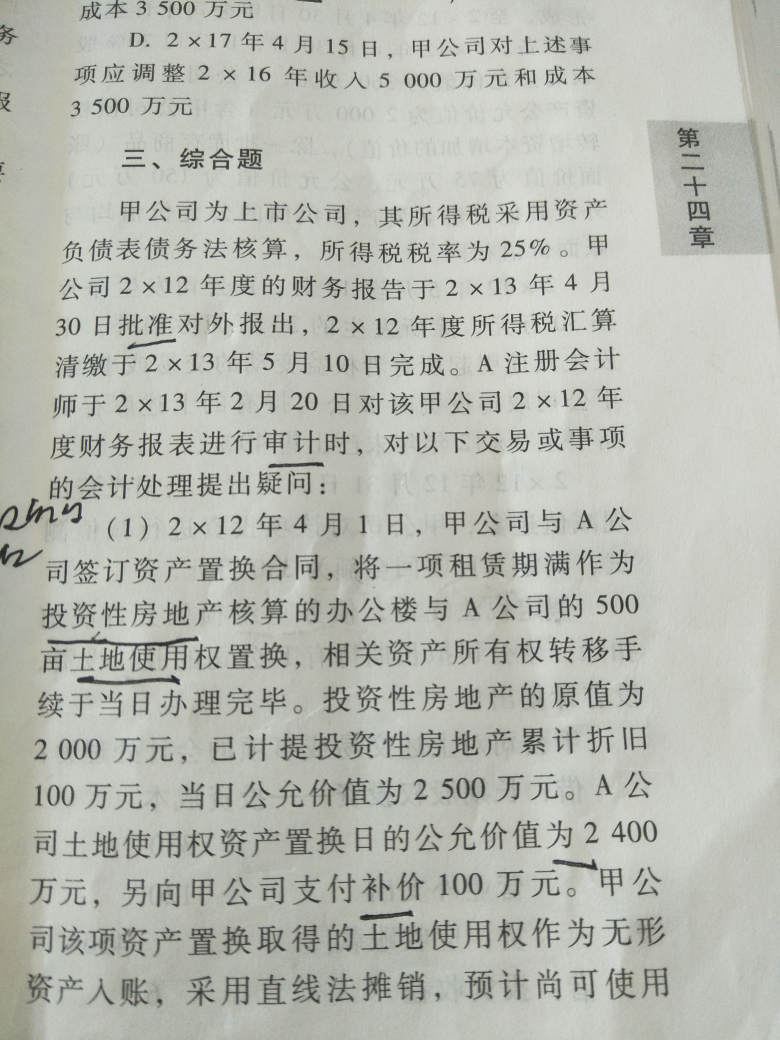 成本 3 500 万元
D. 2×17 年 4 月 15 日，甲公司对上述事
项应调整 2×16 年收入 5 000 万元和成本
3 500 万元
三、综合题
甲公司为上市公司，其所得税采用资产
负债表债务法核算，所得税税率为 25%。甲
公司 2×12 年度的财务报告于 2×13 年 4 月
30 日批准对外报出，2×12 年度所得税汇算
清缴于 2×13 年 5 月 10 日完成。A 注册会计
师于 2×13 年 2 月 20 日对该甲公司 2×12 年
度财务报表进行审计时，对以下交易或事项
的会计处理提出疑问：
(1) 2×12 年 4 月 1 日，甲公司与 A 公
司签订资产置换合同，将一项租赁期满作为
投资性房地产核算的办公楼与 A 公司的 500
亩土地使用权置换，相关资产所有权转移手
续于当日办理完毕。投资性房地产的原值为
2 000 万元，已计提投资性房地产累计折旧
100 万元，当日公允价值为 2 500 万元。A 公
司土地使用权资产置换日的公允价值为 2 400
万元，另向甲公司支付补价 100 万元。甲公
司该项资产置换取得的土地使用权作为无形
资产入账，采用直线法摊销，预计尚可使用
第二十四章
务
报